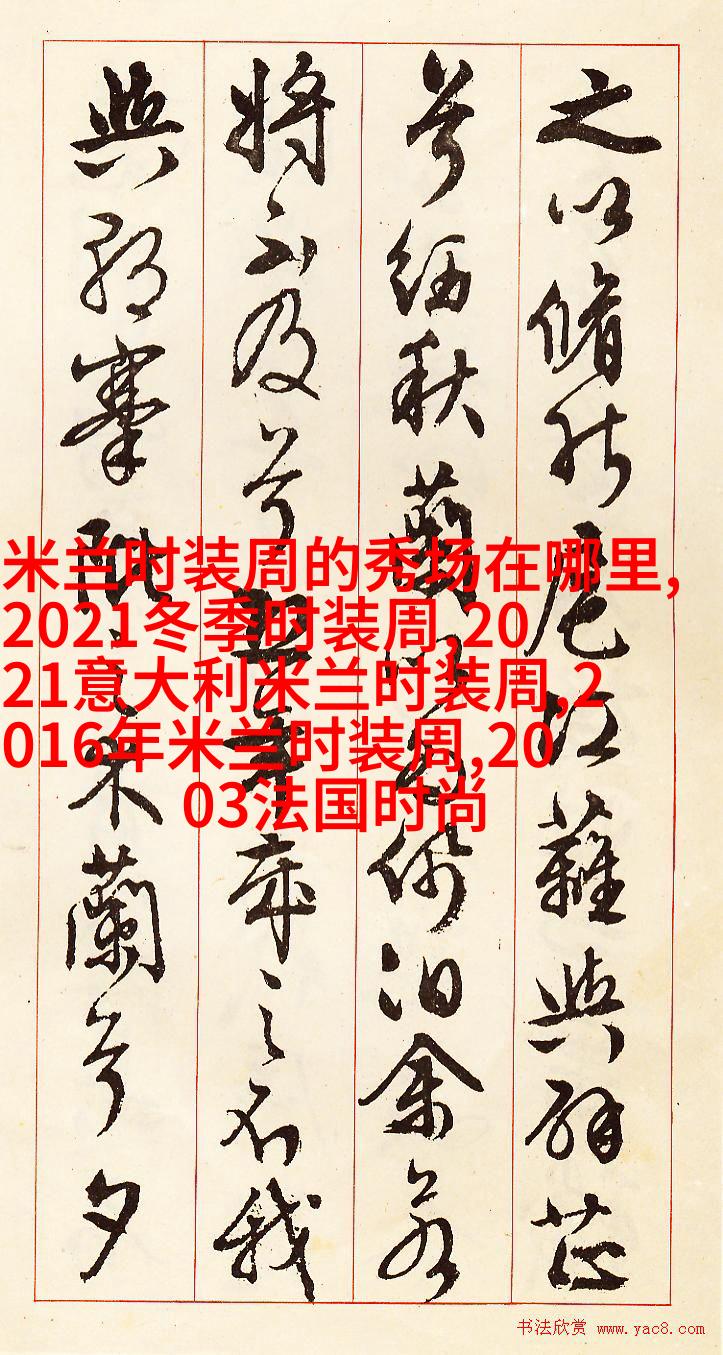 之以脩能扈江蘺與辟芷
兮紉秋蘭以為佩汩余若
將不及兮恐年歲之不我
與朝搴阰之木蘭兮夕
米兰时装周的秀场在哪里,
2021冬季时装周,20
21意大利米兰时装周,2
016年米兰时装周,20
03法国时尚
书法欣赏 www.yac8.com